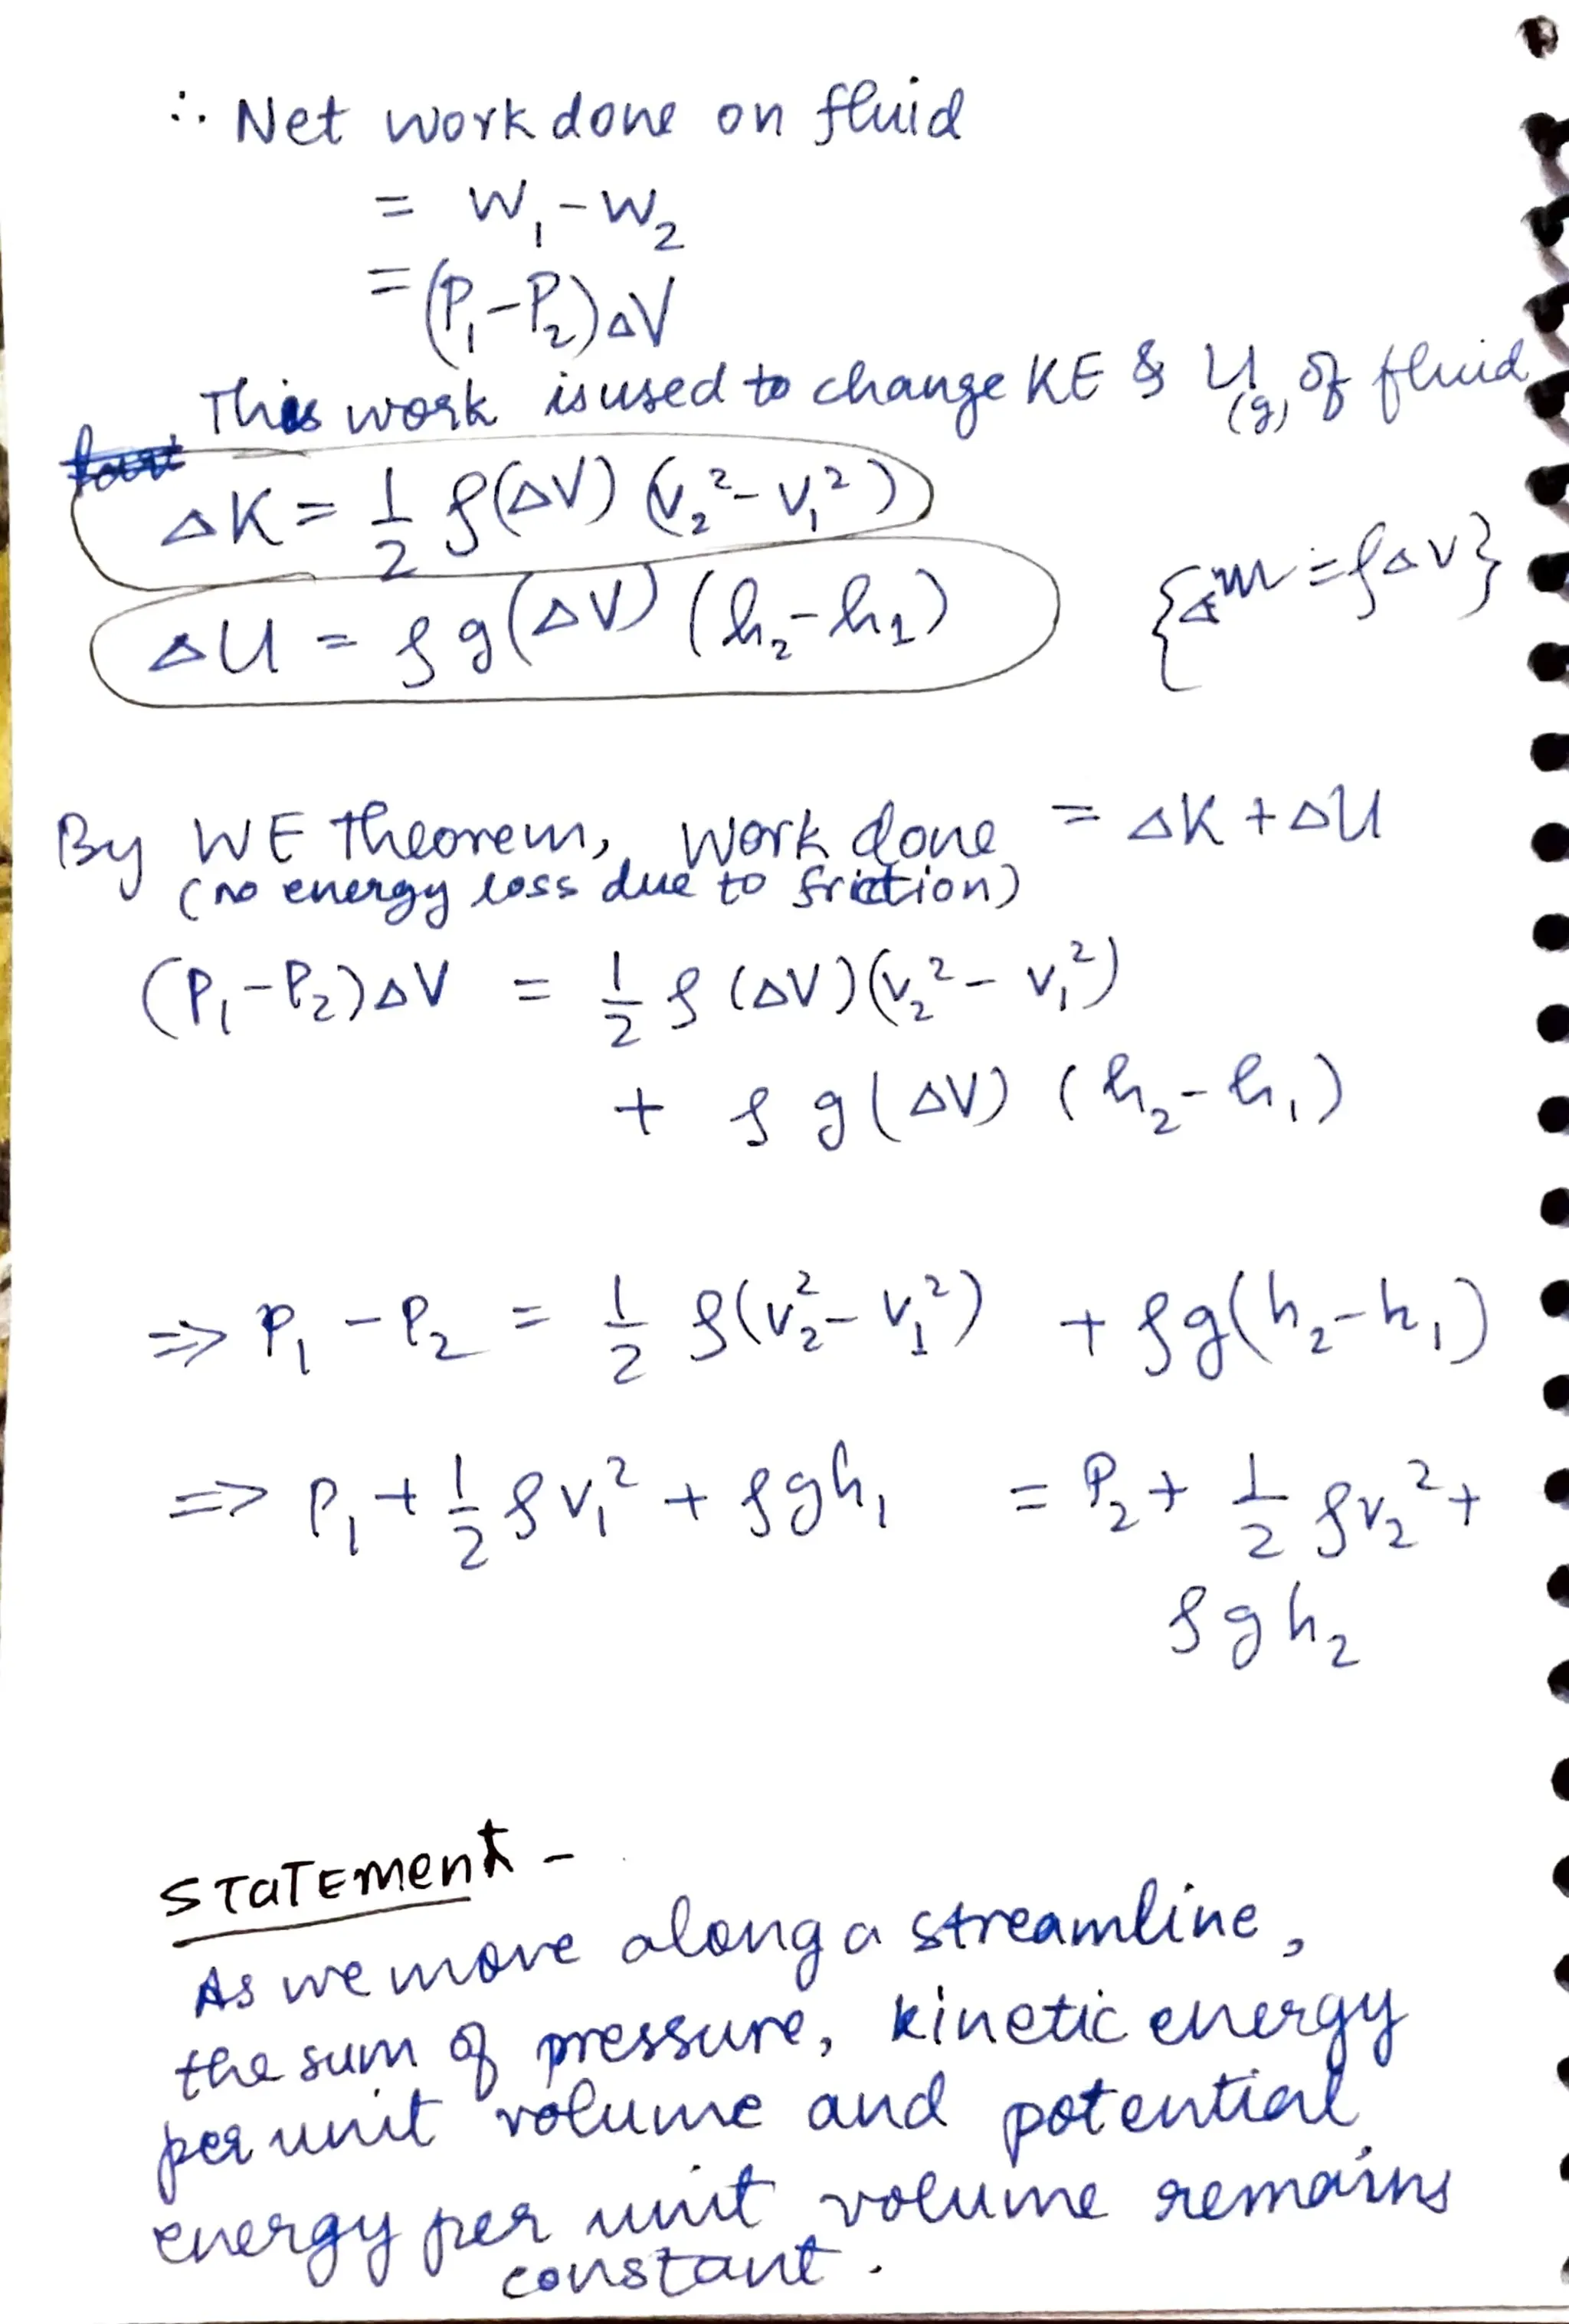 ∴ Net work done on fluid
= W₁ - W₂
= (P₁ - P₂) ΔV
This work is used to change KE & U(g) of fluid
ΔK = 1/2 ρ(ΔV) (v₂² - v₁²)
ΔU = ρg(ΔV) (h₂ - h₁) {Δm = ρΔV}
By WE theorem, work done = ΔK + ΔU
(no energy loss due to friction)
(P₁ - P₂) ΔV = 1/2 ρ (ΔV) (v₂² - v₁²)
+ ρ g (ΔV) (h₂ - h₁)
⇒ P₁ - P₂ = 1/2 ρ(v₂² - v₁²) + ρg(h₂ - h₁)
⇒ P₁ + 1/2 ρv₁² + ρgh₁ = P₂ + 1/2 ρv₂² +
ρgh₂
STaTEment -
As we move along a streamline,
the sum of pressure, kinetic energy
per unit volume and potential
energy per unit volume remains
constant.